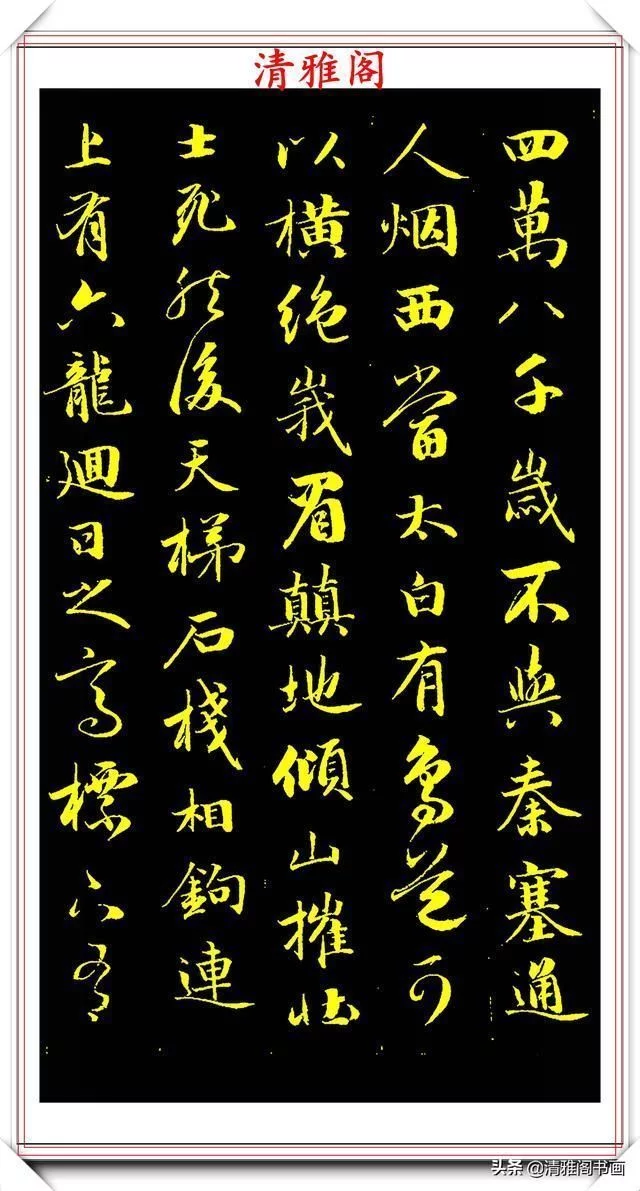 清雅阁
四萬八千歲不與秦塞通
人烟西當太白有鳥道可
以橫絶峩眉顛地傾山摧壯
士死然後天梯石棧相鉤連
上有六龍迴日之高標下有
头条@清雅阁书画